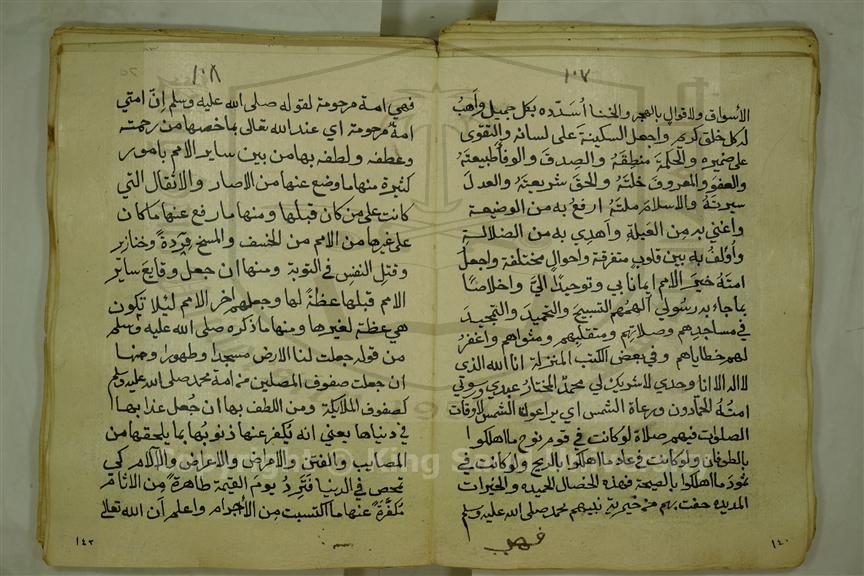 ١٠٧
الأسواق ولا قوال بالهجر والخنا أسدّده بكل جميل وأهب
له كل خلق كريم واجعل السكينة على لسانه والتقوى
على ضميره والحكمة منطقَهُ والصدق والوفا طبيعتهُ
والعفو والمعروف خلَتَهُ والحق شريعتهُ والعدل
سيرتهُ والاسلام ملتَهُ ارفع به من الوضيعة
واغني به من العيلة واهدي به من الضلالة
وأولف به بين قلوب متفرقة واحوال مختلفة واجعل
امتهُ خير الامم ايمانا بي وتوحيدًا اليّ واخلاصًا
بما جاء به رسولي الهمهم التسبيح والتحميد والتمجيد
في مساجدهم وصلاتهم ومتقلبهم ومثواهم واغفر
لهم خطاياهم وفي بعض الكتب المنزلة انا الله الذي
لا اله الا انا وحدي لا شريك لي محمد المختار عبدي ورسولي
امتهُ الحمّادون ورعاة الشمس اي يراعون الشمس لاوقات
الصلوات فيهم صلاة لو كانت في قوم نوح ما اهلكوا
بالطوفان ولو كانت في عاد ما اهلكوا بالريح ولو كانت في
ثمود ما اهلكوا بالصيحة فهذه الخصال الحميده والخيرات
المديده حفت بهم من خيرية نبيهم محمد صلى الله عليه وسلم
فهي
١٤٠
١٠٨
فهي امة مرحومة لقوله صلى الله عليه وسلم إنّ امتي
امة مرحومة اي عند الله تعالى بما خصها من رحمته
وعطفه ولطفه بها من بين ساير الامم بامور
كثيرة منها ما وضع عنها من الاصار والاثقال التي
كانت على من كان قبلها ومنها ما رفع عنها ما كان
على غيرها من الامم من الخسف والمسخ قردةً وخنازير
وقتل النفس في التوبة ومنها ان جعل وقايع ساير
الامم قبلها عظةً لها وجعلهم اخر الامم ليلا تكون
هي عظة لغيرها ومنها ما ذكره صلى الله عليه وسلم
من قوله جعلت لنا الارض مسجدا وطهورا ومنها
ان جعلت صفوف المصلين من امة محمد صلى الله عليه وسلم
كصفوف الملايكة ومن اللطف بها ان جُعل عذابها
في دنياها يعني انه يكفر عنها ذنوبُها بما يلحقها من
المصايب والفتن والامراض والاعراض والآلام كي
تمحص في الدنيا فتَرِدُ يوم القيمة طاهرةً من الاثام
مُكفَّرةً عنها ما اكتسبت من الأجرام واعلم أن الله تعالى
١٤٢